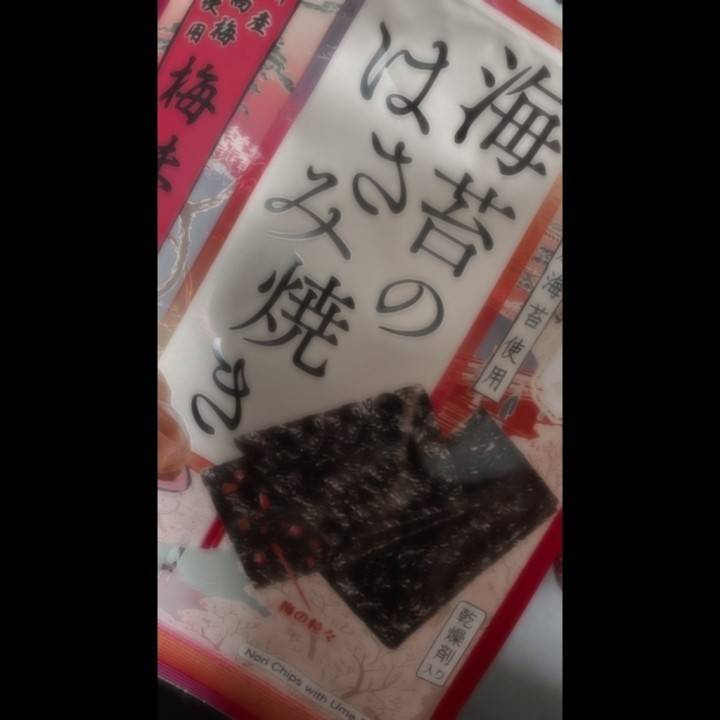 海苔の
はさみ焼き
梅
海苔使用
梅の粒々
乾燥剤
入り
Nori Chips with Ume